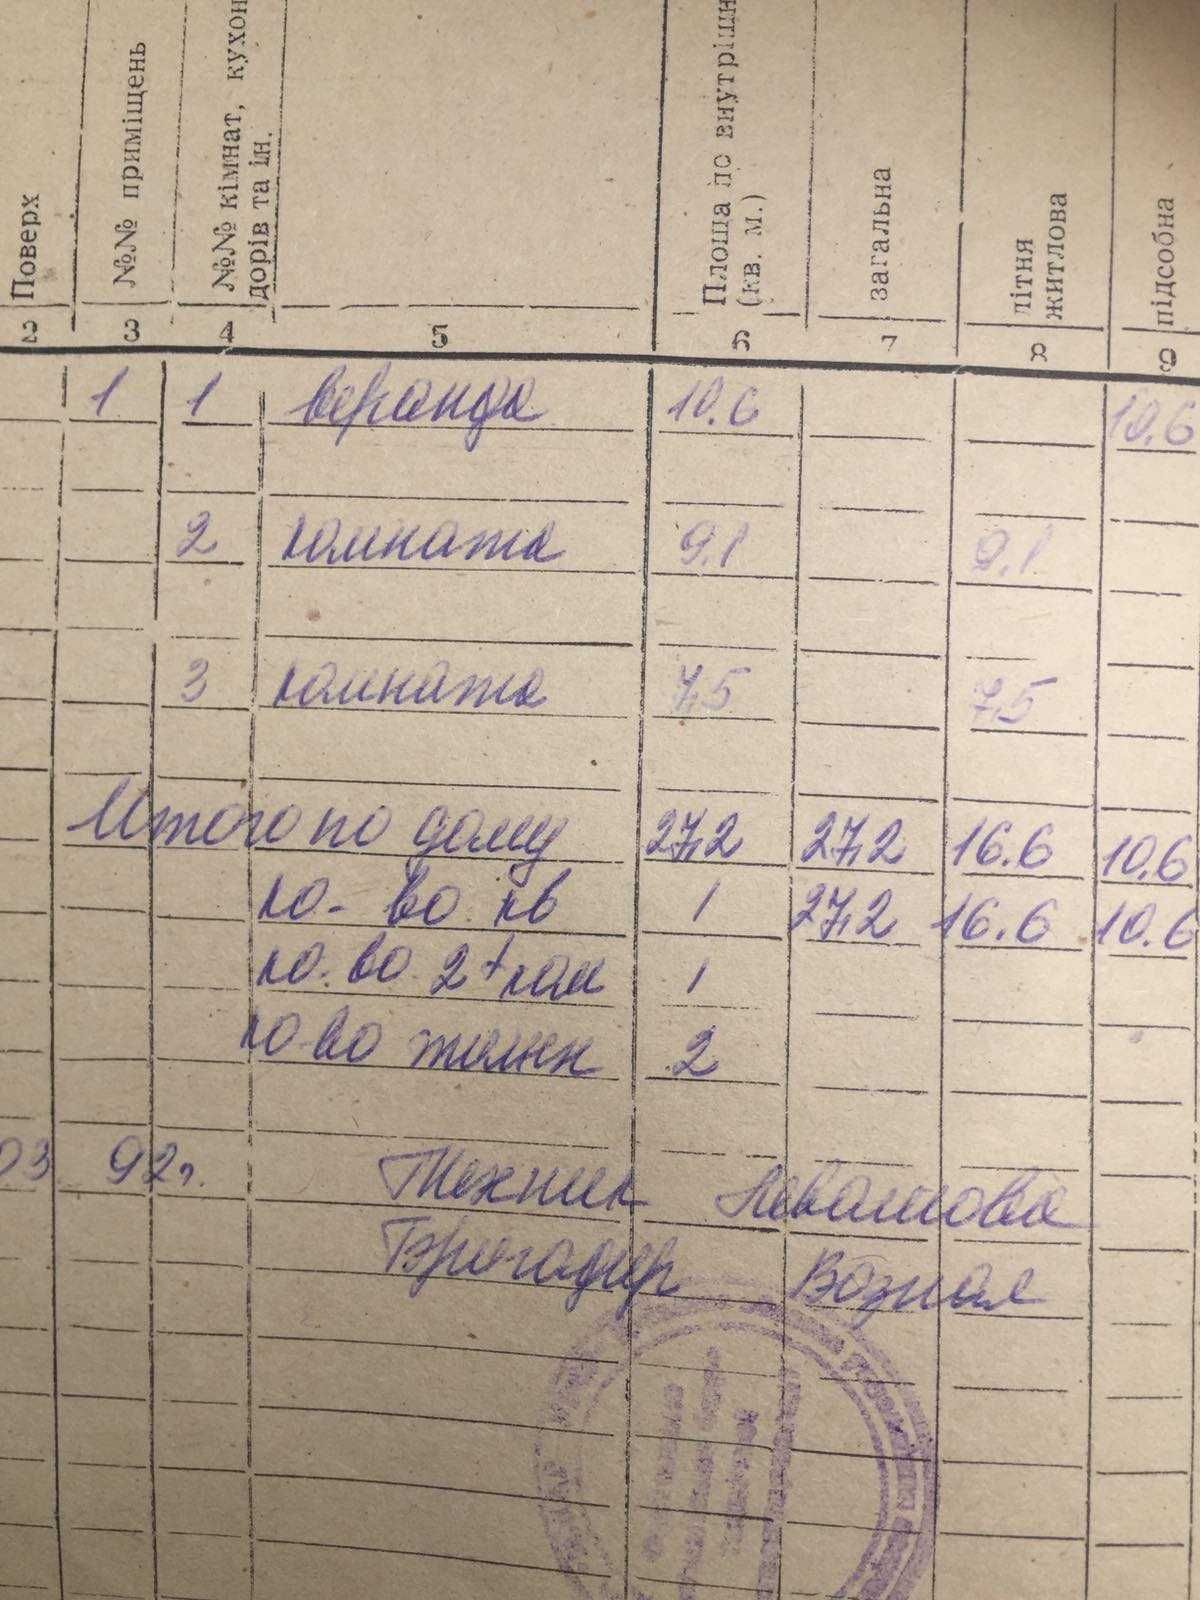 Поверх
№№ приміщень
№№ кімнат, кухон
дорів та ін.
Площа по внутрішн
(кв. м.)
загальна
літня
житлова
підсобна
2 3 4 5 6 7 8 9
1 1 веранда 10.6 10.6
2 комната 9.1 9.1
3 комната 7,5 7,5
Итого по дому 27,2 27,2 16.6 10.6
ко-во кв 1 27,2 16.6 10.6
ко.во 2+ком 1
ко-во жилкн 2
03 92г. Техник
Бригадир Возная